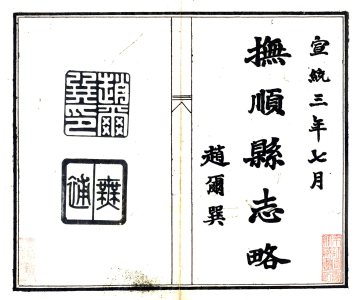 宣統三年七月
撫順縣志略
趙爾巽
趙爾
巽印